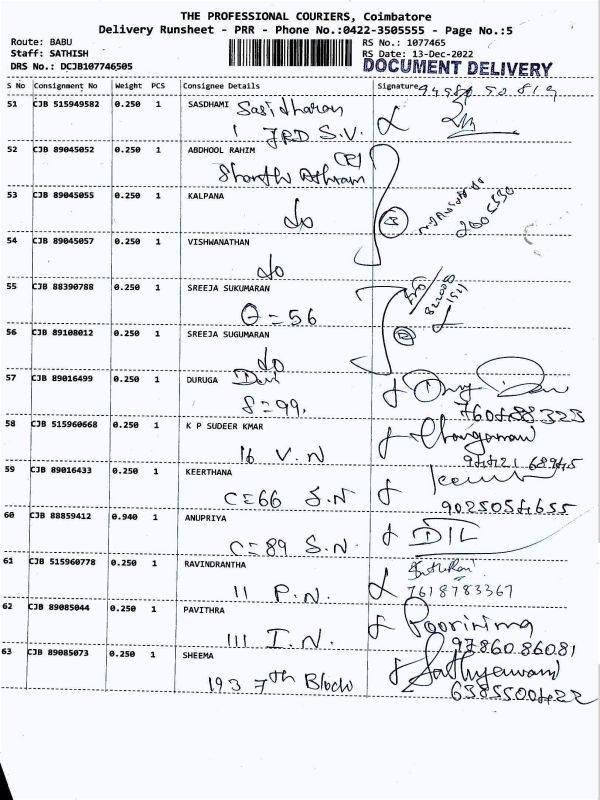 THE PROFESSIONAL COURIERS, Coimbatore
Delivery Runsheet - PRR - Phone No.:0422-3505555 - Page No.:5
Route: BABU RS No.: 1077465
Staff: SATHISH RS Date: 13-Dec-2022
DRS No.: DCJB107746505 DOCUMENT DELIVERY
S No Consignment No Weight PCS Consignee Details Signature
51 CJB 515949582 0.250 1 SASDHAMI Sasidharan
JRD S.V.
52 CJB 89045052 0.250 1 ABDHOOL RAHIM
53 CJB 89045055 0.250 1 KALPANA
do
54 CJB 89045057 0.250 1 VISHWANATHAN
do
55 CJB 88390788 0.250 1 SREEJA SUKUMARAN
56 CJB 89108012 0.250 1 SREEJA SUGUMARAN
do
57 CJB 89016499 0.250 1 DURUGA Devi
S=99.
58 CJB 515960668 0.250 1 K P SUDEER KMAR
16 V.N
59 CJB 89016433 0.250 1 KEERTHANA
C=66 S.N
60 CJB 88859412 0.940 1 ANUPRIYA
C=89 S.N.
61 CJB 515960778 0.250 1 RAVINDRANTHA
11 P.N. 7618783367
62 CJB 89085044 0.250 1 PAVITHRA
111 I.N. Poornima
97860.86081
63 CJB 89085073 0.250 1 SHEEMA
193 7th Block